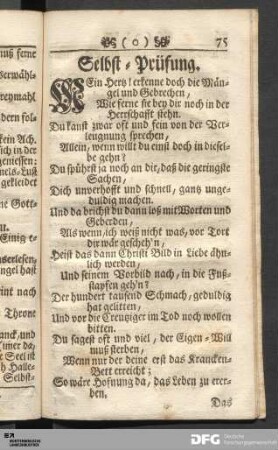 ( o ) 75
Selbst-Prüfung.
MEin Hertz! erkenne doch die Män-
gel und Gebrechen,
Wie ferne sie bey dir noch in der
Herrschafft stehn.
Du kanst zwar oft und fein von der Ver-
leugnung sprechen,
Allein, wenn willt du einst doch in diesel-
be gehn?
Du spührst ja noch an dir, daß die geringste
Sachen,
Dich unverhofft und schnell, gantz unge-
duldig machen.
Und da brichst du dann loß mit Worten und
Geberden,
Als wenn, ich weiß nicht was, vor Tort
dir wär gescheh'n,
Heist das dann Christi Bild in Liebe ähn-
lich werden,
Und seinem Vorbild nach, in die Fuß-
stapfen geh'n?
Der hundert tausend Schmach, geduldig
hat gelitten,
Und vor die Creutziger im Tod noch wollen
bitten.
Du sagest oft und viel, der Eigen-Will
muß sterben,
Wenn nur der deine erst das Krancken-
Bett erreicht;
So wäre Hofnung da, das Leben zu erer-
ben,
Das
muß ferne
Erwähl-
reymahl
dern fol-
kein Ach.
sich in der
geniessen:
nels-Lust
gekleidet
ne Gott-
Einig e-
auserlesen,
ngel hast
rint nach
Throne
anck, und
immer da,
r Seel ist
ch Halle-
Selbst-
DFG Deutsche
Forschungsgemeinschaft